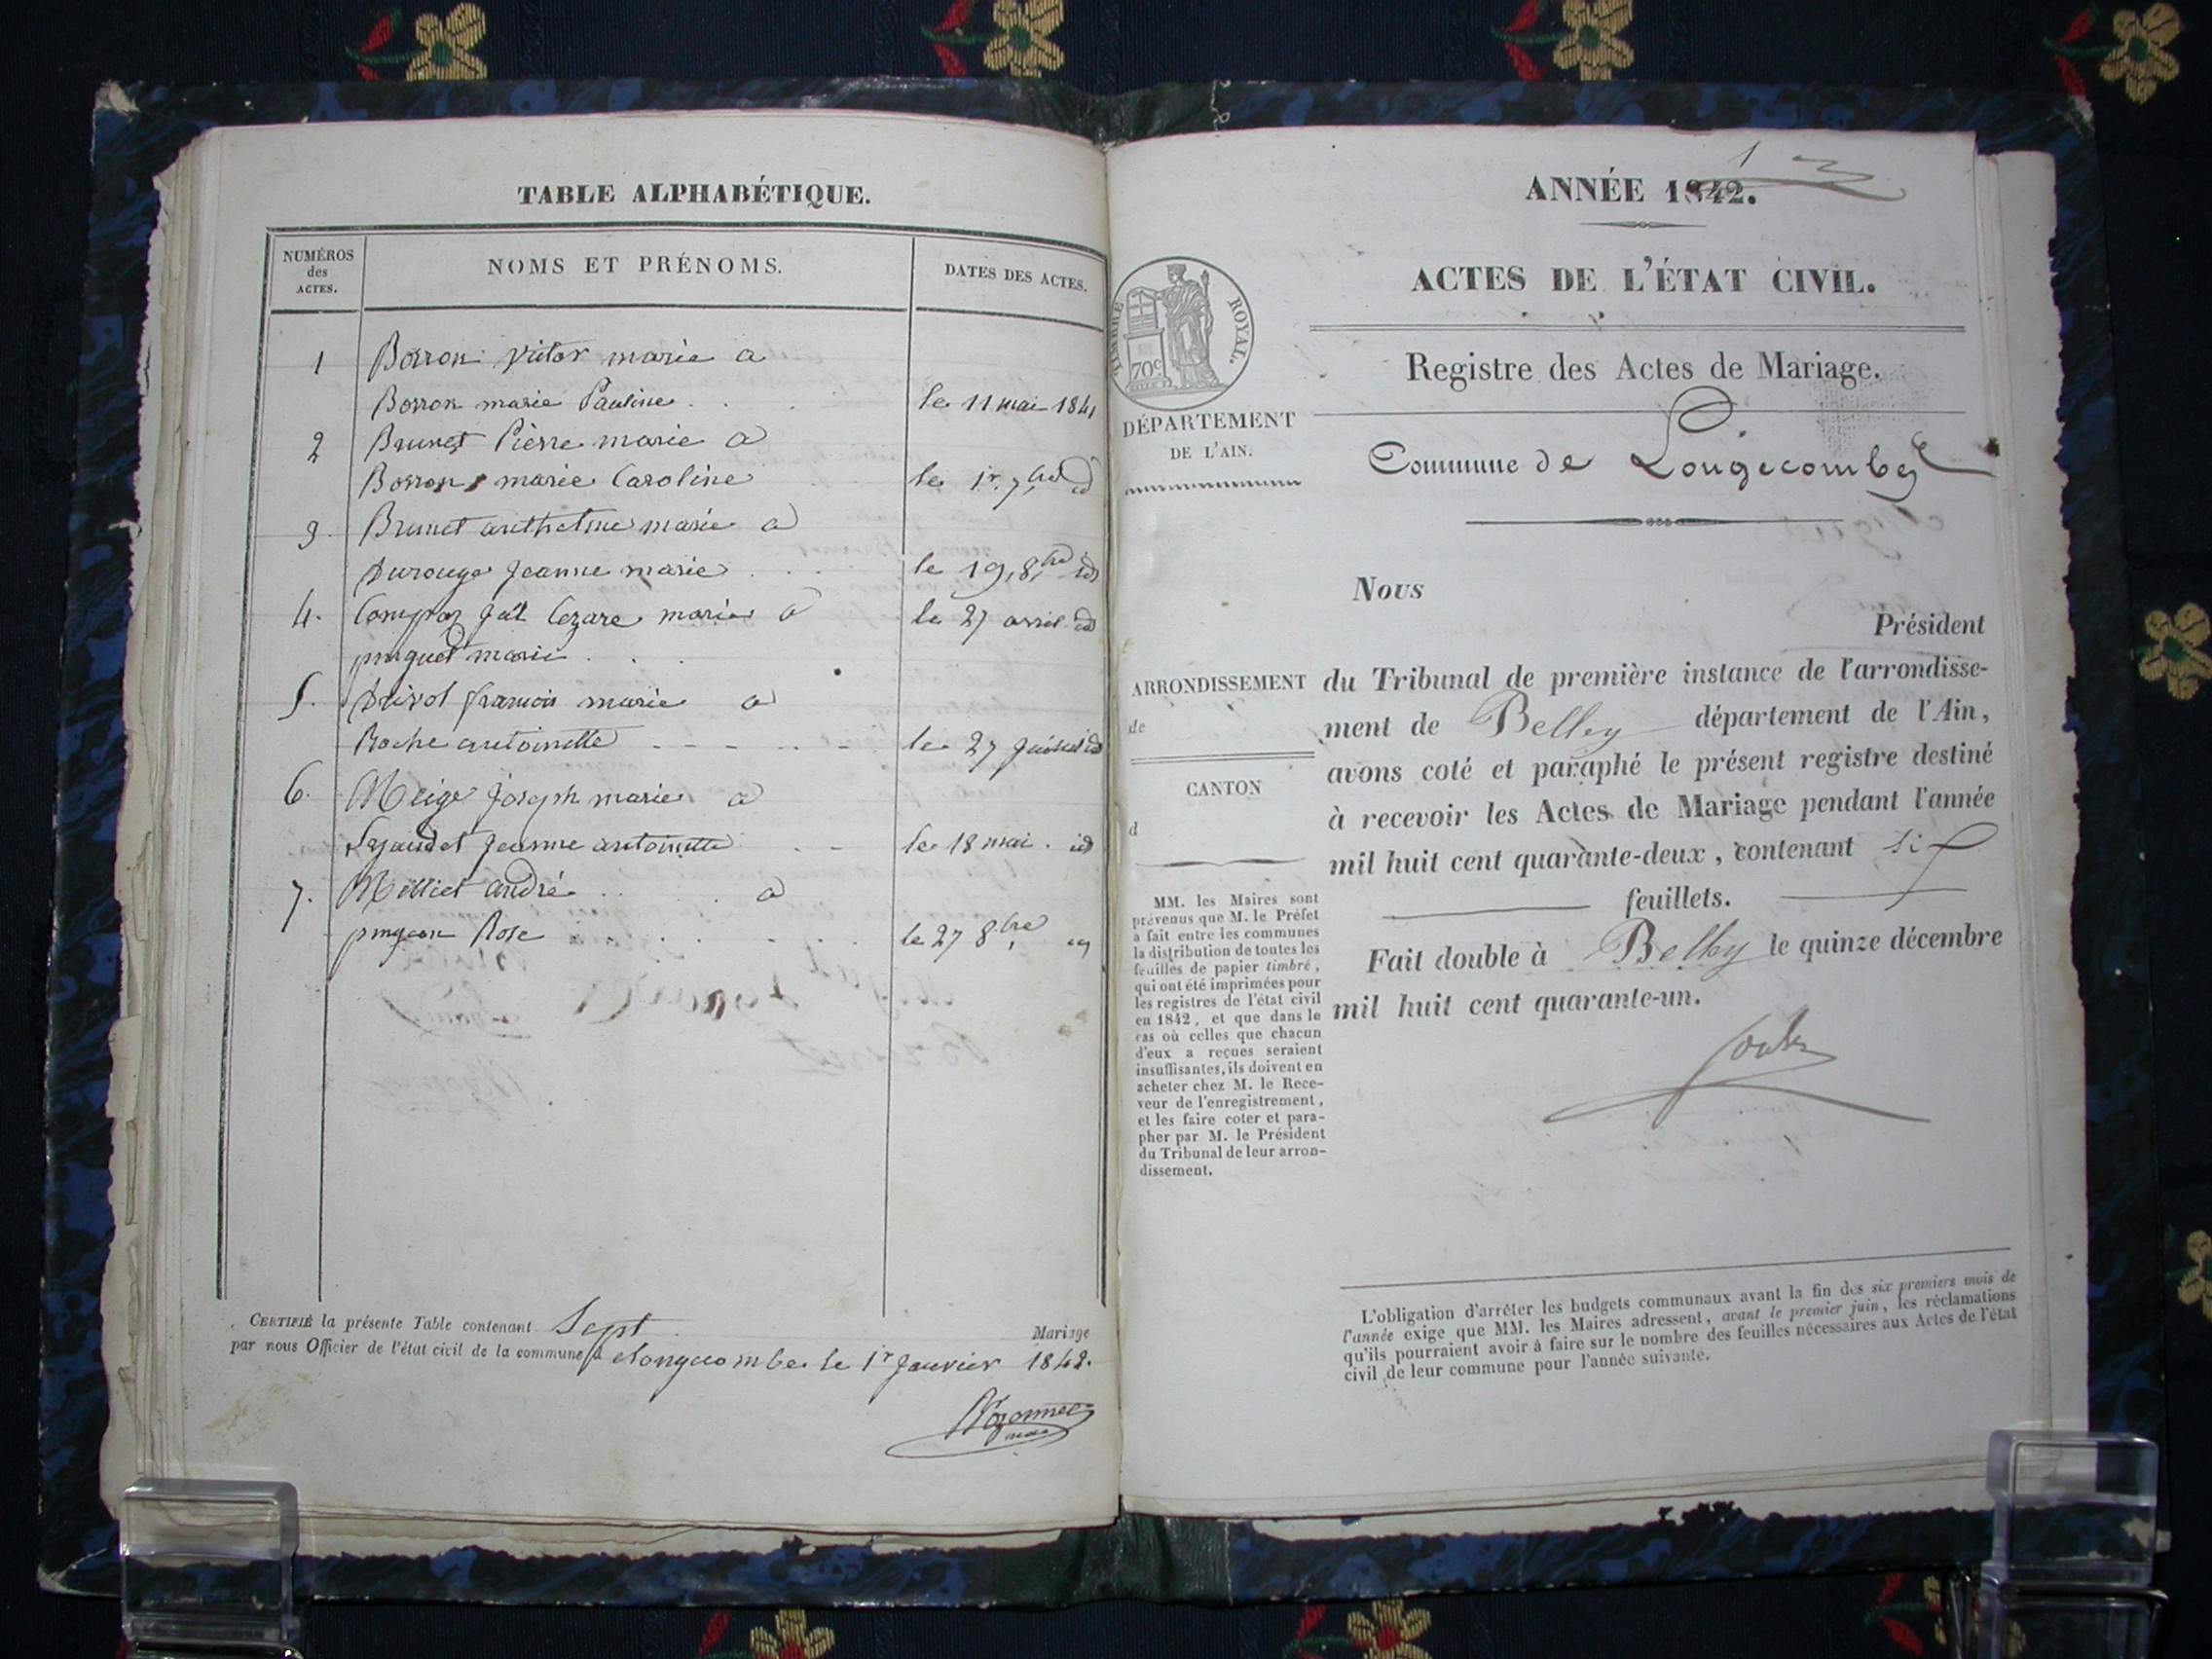 TABLE ALPHABÉTIQUE.
NUMÉROS
des
ACTES.
NOMS ET PRÉNOMS.
DATES DES ACTES.
1 Borron Victor marié a
Borron marie Pauline . . . le 11 mai 1841
2 Brunet Pierre marié a
Borron marie Caroline le 1r 7bre id
3 Brunet anthelme marié a
Durouge Jeanne marie . . . le 19 8bre id
4. marié a le 27 avril id
marie . . .
5. francois marié a
Roche antoinette le 27 id
6. Meige Joseph marié a
Jeanne antoinette . - le 18 mai . id
7. Milliet andré . . . a
pingeon Rose . . . . . . . le 27 8bre id
CERTIFIÉ la présente Table contenant Sept Mariage
par nous Officier de l'état civil de la commune a Longecombe le 1r Janvier 1842.
1
ANNÉE 1842.
ACTES DE L'ÉTAT CIVIL.
Registre des Actes de Mariage.
TIMBRE ROYAL.
70c
DÉPARTEMENT
DE L'AIN.
Commune de Longecombe
Nous
Président
ARRONDISSEMENT
de
CANTON
d
du Tribunal de première instance de l'arrondisse-
ment de Belley département de l'Ain,
avons coté et paraphé le présent registre destiné
à recevoir les Actes de Mariage pendant l'année
mil huit cent quarante-deux, contenant six
feuillets.
Fait double à Belley le quinze décembre
mil huit cent quarante-un.
MM. les Maires sont
prévenus que M. le Préfet
a fait entre les communes
la distribution de toutes les
feuilles de papier timbré,
qui ont été imprimées pour
les registres de l'état civil
en 1842, et que dans le
cas où celles que chacun
d'eux a reçues seraient
insuffisantes, ils doivent en
acheter chez M. le Rece-
veur de l'enregistrement,
et les faire coter et para-
pher par M. le Président
du Tribunal de leur arron-
dissement.
L'obligation d'arrêter les budgets communaux avant la fin des six premiers mois de
l'année exige que MM. les Maires adressent, avant le premier juin, les réclamations
qu'ils pourraient avoir à faire sur le nombre des feuilles nécessaires aux Actes de l'état
civil de leur commune pour l'année suivante.